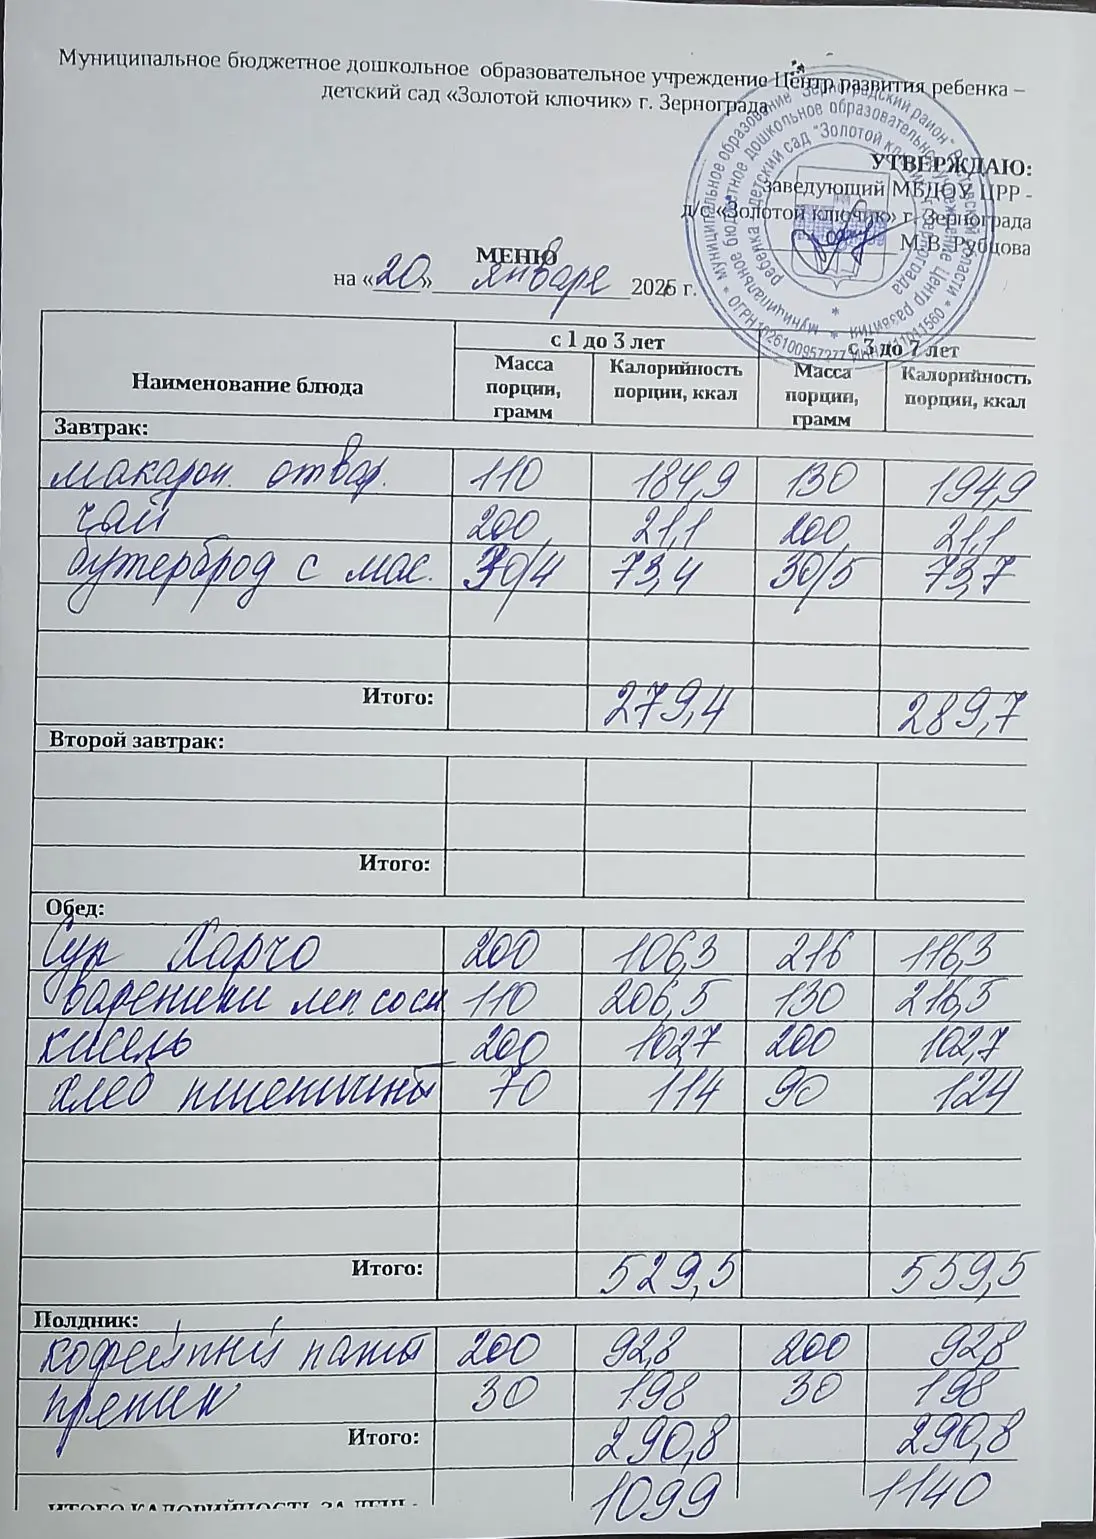 Муниципальное бюджетное дошкольное образовательное учреждение Центр развития ребенка –
детский сад «Золотой ключик» г. Зернограда
УТВЕРЖДАЮ:
заведующий МБДОУ ЦРР -
д/с «Золотой ключик» г. Зернограда
М.В. Рубцова
МЕНЮ
на «20» января 2026 г.
Наименование блюда с 1 до 3 лет с 3 до 7 лет
Масса порции, грамм Калорийность порции, ккал Масса порции, грамм Калорийность порции, ккал
Завтрак:
макарон. отвар. 110 184,9 130 194,9
чай 200 21,1 200 21,1
бутерброд с мас. 30/4 73,4 30/5 73,7
Итого: 279,4 289,7
Второй завтрак:
Итого:
Обед:
Суп Харчо 200 106,3 216 116,3
вареники леп. сосм 110 206,5 130 216,5
кисель 200 102,7 200 102,7
хлеб пшеничный 70 114 90 124
Итого: 529,5 559,5
Полдник:
кофейный напит 200 92,8 200 92,8
пряник 30 198 30 198
Итого: 290,8 290,8
ИТОГО КАЛОРИЙНОСТЬ ЗА ДЕНЬ: 1099 1140